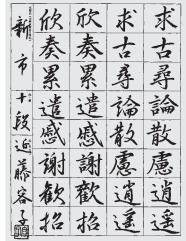 求古尋論散慮逍遥
求古尋論散慮逍遥
欣奏累遣慼謝歓招
欣奏累遣慼謝歡招
新市十段近藤容子